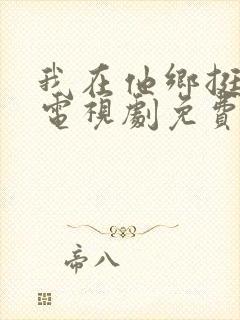 我在他鄉挺
電視劇免費
帝八